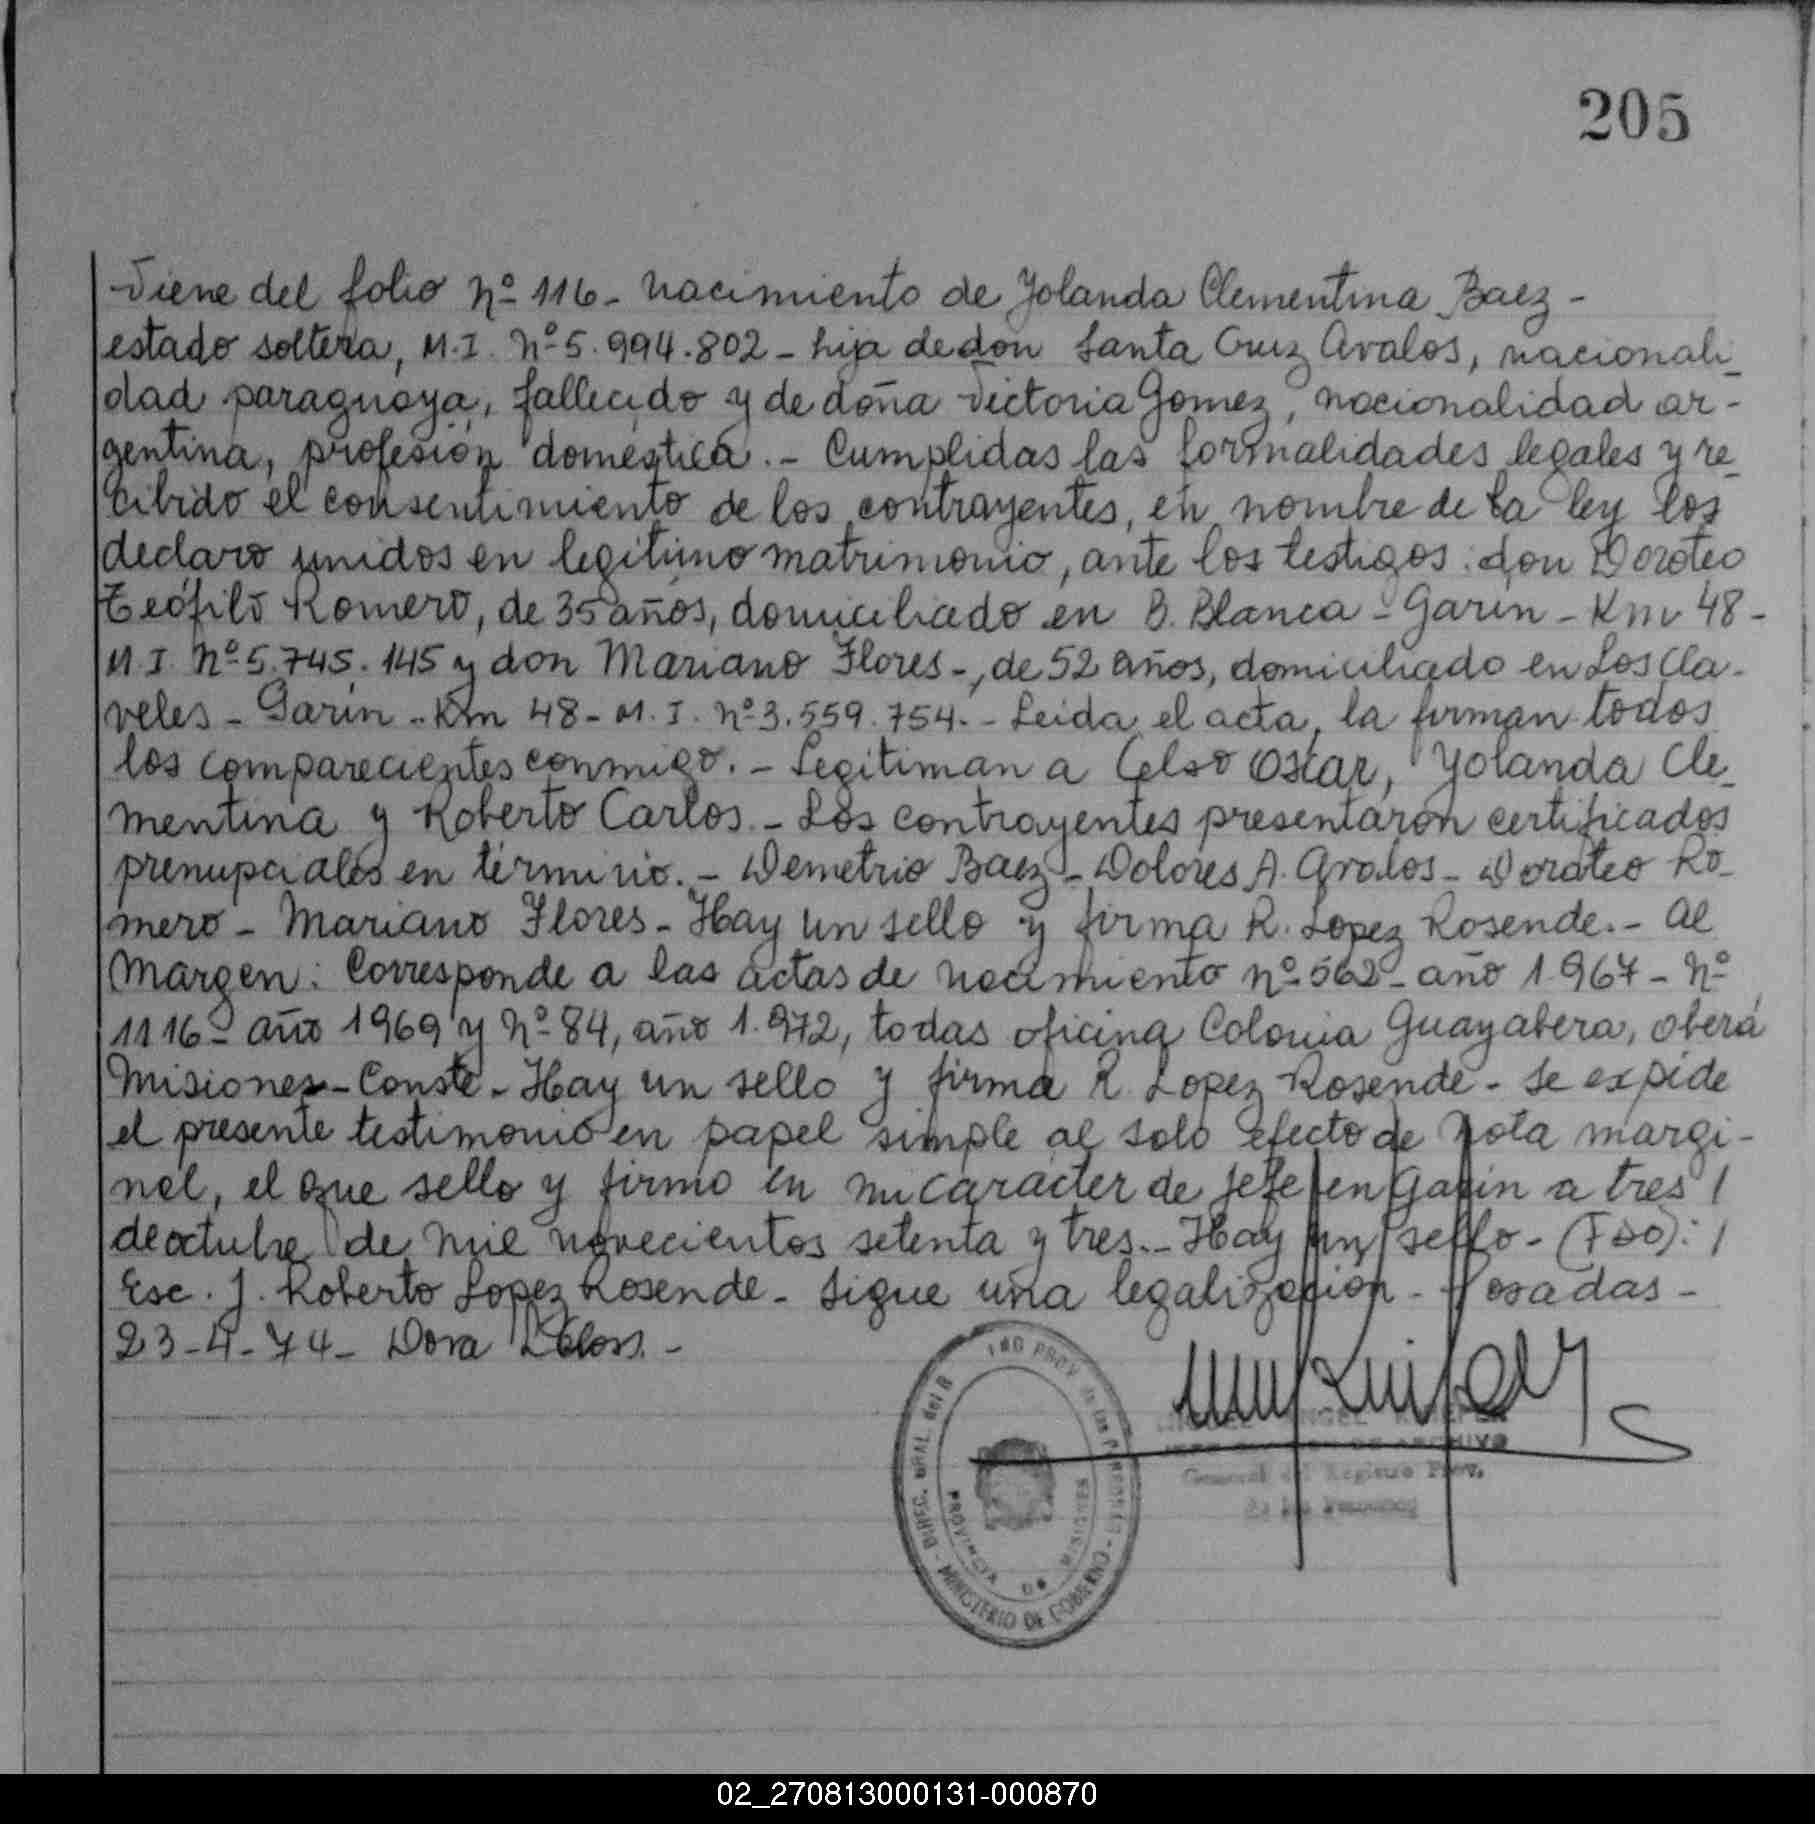 205
Viene del folio Nº 116 - nacimiento de Yolanda Clementina Baez -
estado soltera, M.I. Nº 5.994.802 - hija de don Santa Cruz Avalos, nacionali-
dad paraguaya, fallecido y de doña Victoria Gomez, nacionalidad ar-
gentina, profesión doméstica. - Cumplidas las formalidades legales y re-
cibido el consentimiento de los contrayentes, en nombre de la ley los
declaro unidos en legítimo matrimonio, ante los testigos: don Doroteo
Teófilo Romero, de 35 años, domiciliado en B. Blanca - Garin - Km 48 -
M.I. Nº 5.745.145 y don Mariano Flores -, de 52 años, domiciliado en Los Cla-
veles - Garin - Km 48 - M.I. Nº 3.559.754. - Leida el acta, la firman todos
los comparecientes conmigo. - Legitiman a Celso Oscar, Yolanda Cle-
mentina y Roberto Carlos. - Los contrayentes presentaron certificados
prenupciales en término. - Demetrio Baez - Dolores A. Avalos - Doroteo Ro-
mero - Mariano Flores - Hay un sello y firma R. Lopez Rosende. - Al
Margen: Corresponde a las actas de nacimiento Nº 562 - año 1.967 - Nº
1116 - año 1969 y Nº 84, año 1.972, todas oficina Colonia Guayabera, Oberá
Misiones - Conste - Hay un sello y firma R. Lopez Rosende - Se expide
el presente testimonio en papel simple al solo efecto de nota margi-
nal, el que sello y firmo en mi carácter de jefe, en Garin a tres /
de octubre de mil novecientos setenta y tres. - Hay un sello - (FDO): /
Esc. J. Roberto Lopez Rosende - Sigue una legalización - Posadas -
23-4-74 - Dora
DIREC. GRAL. del R PROV. de las Personas - MINISTERIO DE GOBIERNO -
PROVINCIA DE MISIONES
ANGEL
DE ARCHIVO
General del Registro Prov.
de las Personas
02_270813000131-000870